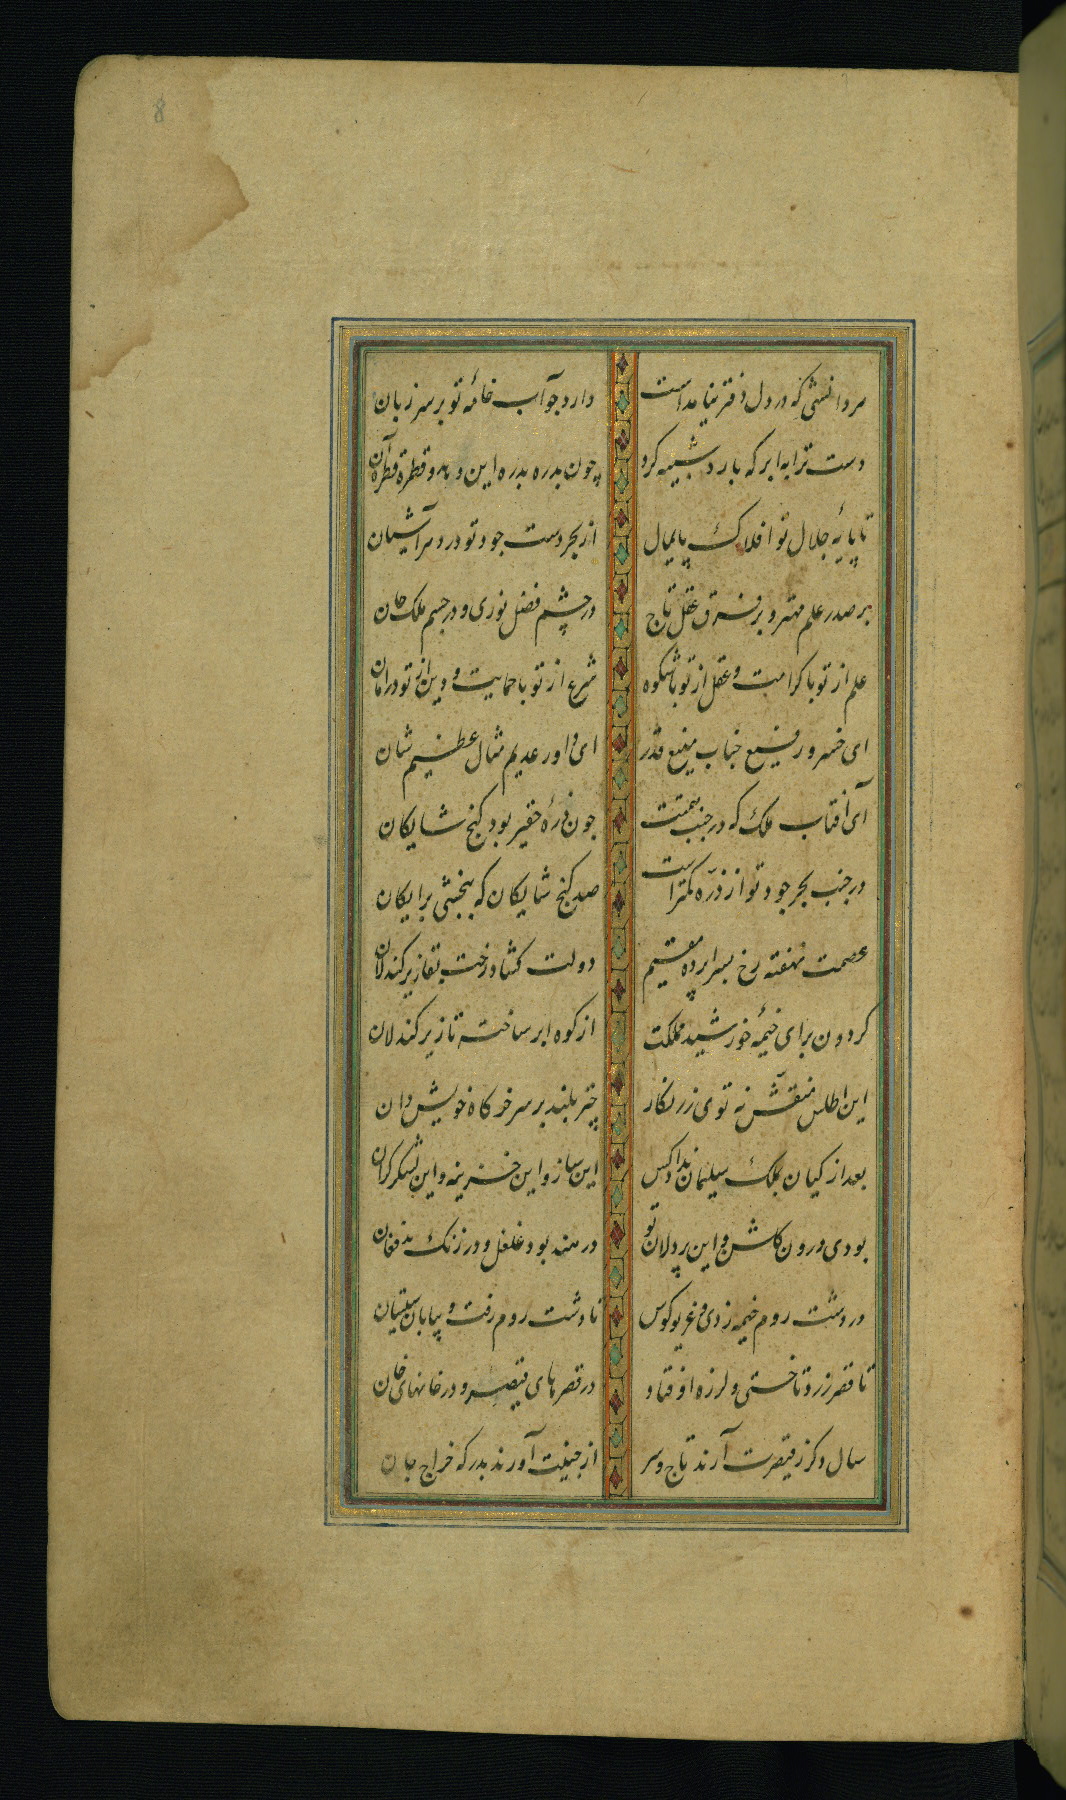 8
هر دانشی که در دل دفتر نیامداست دارد چو آب خامهٔ تو بر سر زبان
دست ترا به ابر که یارد شبیه کرد چون بدره بدره این دهد و قطره قطره آن
تا پایهٔ جلال تو افلاک پایمال از بحر دست جود تو در دهر آسیان
بر صدر علم مهر و بر فرق عقل تاج در چشم فضل نوری و در جسم ملک جان
علم از تو با کرامت و عقل از تو باشکوه شرع از تو با حمایت و دین از تو در امان
ای خسرو رفیع جناب منیع قدر ای داور عدیم مثال عظیم شان
آی آفتاب ملک که در جنب همتت چون ذرهٔ حقیر بود کنج شایکان
در جنب بحر جود تو از ذره کمتر است صد کنج شایکان که ببخشی برایکان
عصمت نهفته رخ بسراپرده مقیم دولت کشاده رخت بقا زیر کندلان
کردون برای خیمهٔ خورشید مملکت از کوه ابر ساخته تا زیر کندلان
این اطلس منقش نه توی زرنکار چتر بلند بر سر خرکاه خویش دان
بعد از کیان بملک سلیمان نداد کس این ساز و این خزینه و این لشکر کران
بودی درون کلشن و این پردلان تو در هند بود غلغل و در زنک بد فغان
در دشت روم خیمه زدی و غریو کوس تا دشت روم رفت و بیابان سیستان
تا قصر زرد تاختی و لرزه اوفتاد در قصرهای قیصر و در خانهای خان
سال دکر ز قیصرت آرند تاج و سر از چینت آورند بدرکه خراج جان